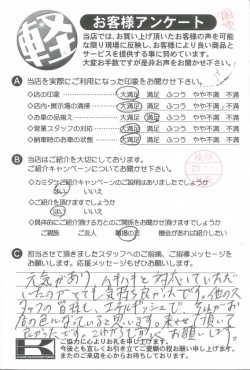 軽
お客様アンケート
当店では、お買い上げ頂いたお客様の声を可能
な限り現場に反映し、お客様により良い商品と
サービスを提供する事に努めています。
大変お手数ですが是非お声をお聞かせ下さい。
A 当店を実際にご利用になった印象をお聞かせ下さい。
◇店の印象 大満足 満足 ふつう やや不満 不満
◇店内・展示場の清掃 大満足 満足 ふつう やや不満 不満
◇お車の品揃え 大満足 満足 ふつう やや不満 不満
◇営業スタッフの対応 大満足 満足 ふつう やや不満 不満
◇ご納車時のお車の状態 大満足 満足 ふつう やや不満 不満
B 当店はご紹介を大切にしております。
ご紹介キャンペーンについてお聞かせ下さい
◇カミタケご紹介キャンペーンのご説明はありましたでしょうか
はい いいえ
◇ご紹介を頂けますでしょうか
はい いいえ
◇具体的にご紹介頂ける方とのご関係をお聞かせ頂けますでしょうか
ご親族 ご友人 職場の方 機会があれば紹介したい
C 担当させて頂きましたスタッフへのご指摘、ご指導メッセージを
お願いします。応援メッセージもぜひお願いします。
元気があり、ハキハキと対応していただ
いたのがとても気持ち良かったです。他のス
タッフの皆様も、エネルギッシュで
店の色になっていると思います。
良かったです。これからもよろしくお願いします。
ご協力に心よりお礼を申し上げます。
今後とも宜しくお引き立てご愛顧の程お願い申し上げます。
またのご来店を心からお待ちしております。